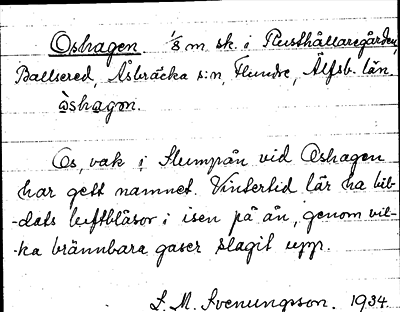 Oshagen. 1/8 m sk. i Rusthållaregården,
Ballsered, Åsbräcka s:n, Flundre, Älfsb. län.
òshagɷn.
Os, vak i Slumpån vid Oshagen
har gett namnet. Vintertid lär ha bil-
-dats luftblåsor i isen på ån, genom vil-
-ka brännbara gaser slagit upp.
S. M. Svenungsson. 1934.